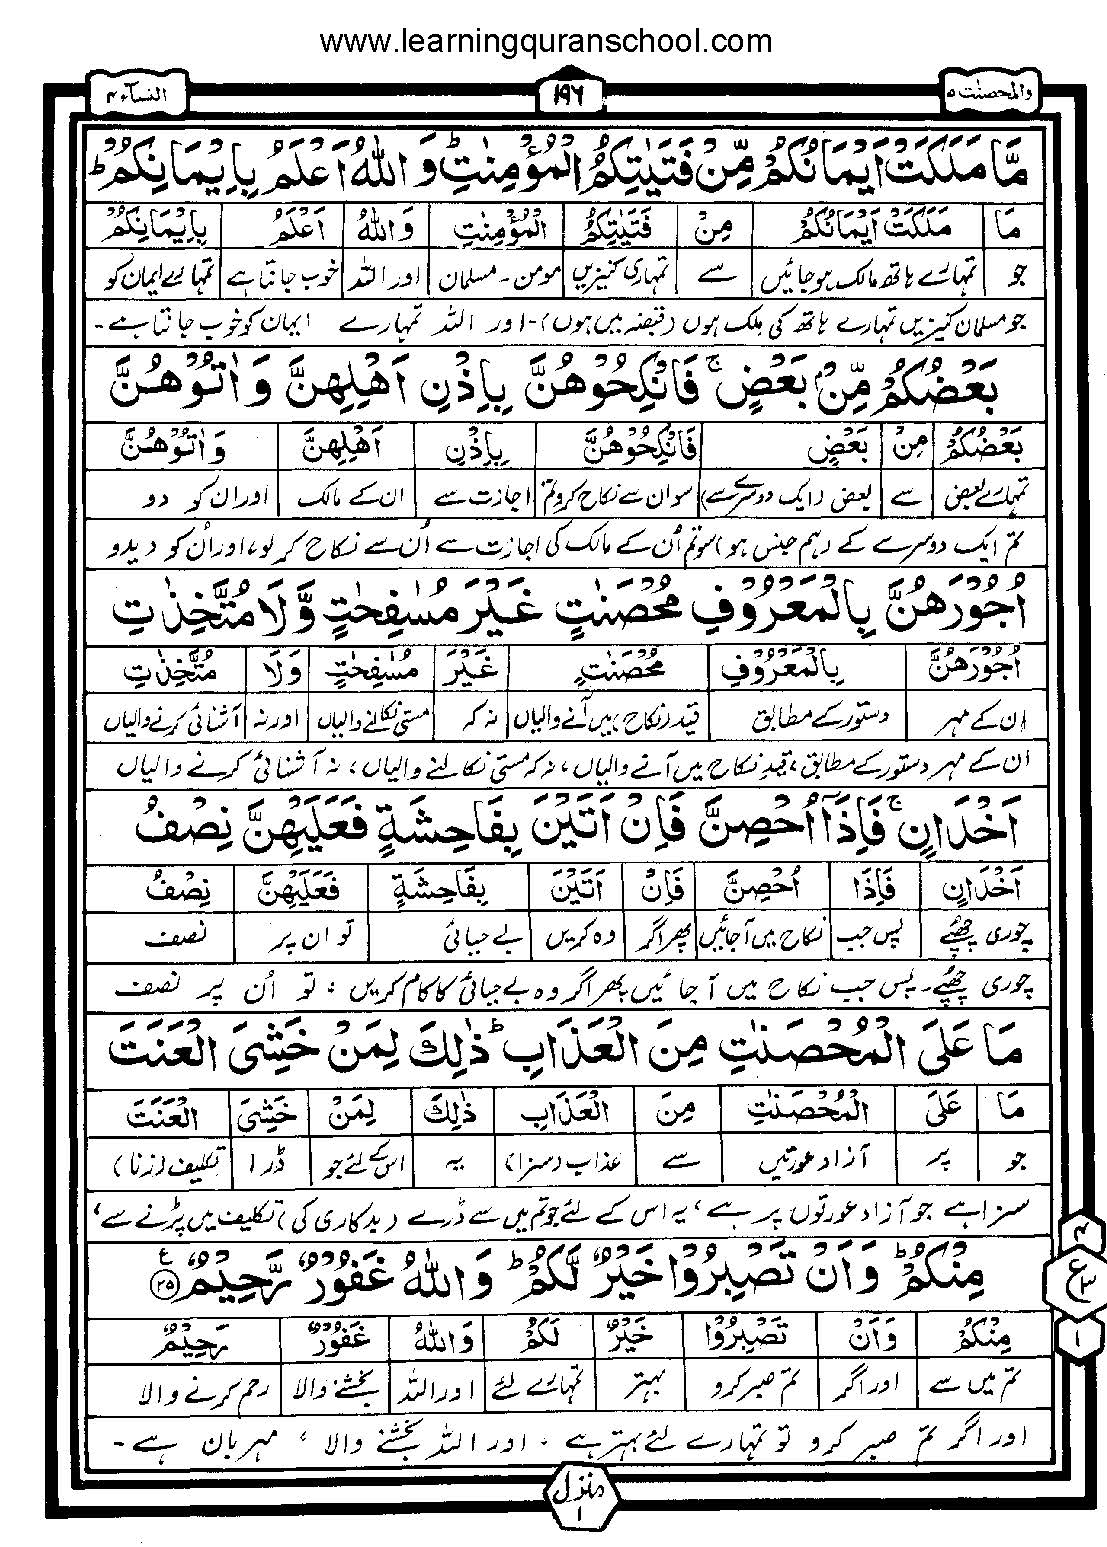 www.learningquranschool.com
والمحصنت ۵
۱۹۶
النسآء ۴
مَّا مَلَكَتْ اَيْمَانُكُمْ مِّنْ فَتَيٰتِكُمُ الْمُؤْمِنٰتِ ؕ وَ اللّٰهُ اَعْلَمُ بِاِيْمَانِكُمْ ؕ
مَا مَلَكَتْ اَيْمَانُكُمْ مِنْ فَتَيٰتِكُمُ الْمُؤْمِنٰتِ وَاللّٰهُ اَعْلَمُ بِاِيْمَانِكُمْ
جو تمہارے ہاتھ مالک ہوجائیں سے تمہاری کنیزیں مومن۔ مسلمان اور اللہ خوب جانتا ہے تمہارے ایمان کو
جو مسلمان کنیزیں تمہارے ہاتھ کی ملک ہوں (قبضہ میں ہوں)۔ اور اللہ تمہارے ایمان کو خوب جانتا ہے۔
بَعْضُكُمْ مِّنْۢ بَعْضٍ ۚ فَانْكِحُوْهُنَّ بِاِذْنِ اَهْلِهِنَّ وَ اٰتُوْهُنَّ
بَعْضُكُمْ مِنْ بَعْضٍ فَانْكِحُوْهُنَّ بِاِذْنِ اَهْلِهِنَّ وَ اٰتُوْهُنَّ
تمہارے بعض سے بعض (ایک دوسرے سے) سو ان سے نکاح کرو تم اجازت سے ان کے مالک اور ان کو دو
تم ایک دوسرے کے (ہم جنس ہو) سو تم اُن کے مالک کی اجازت سے اُن سے نکاح کر لو، اور اُن کو دیدو
اُجُوْرَهُنَّ بِالْمَعْرُوْفِ مُحْصَنٰتٍ غَيْرَ مُسٰفِحٰتٍ وَّلَا مُتَّخِذٰتِ
اُجُوْرَهُنَّ بِالْمَعْرُوْفِ مُحْصَنٰتٍ غَيْرَ مُسٰفِحٰتٍ وَلَا مُتَّخِذٰتِ
ان کے مہر دستور کے مطابق قید (نکاح) میں آنے والیاں نہ کہ مستی نکالنے والیاں اور نہ آشنائی کرنے والیاں
ان کے مہر دستور کے مطابق، قید نکاح میں آنے والیاں، نہ کہ مستی نکالنے والیاں، نہ آشنائی کرنے والیاں
اَخْدَانٍ ۚ فَاِذَاۤ اُحْصِنَّ فَاِنْ اَتَيْنَ بِفَاحِشَةٍ فَعَلَيْهِنَّ نِصْفُ
اَخْدَانٍ فَاِذَا اُحْصِنَّ فَاِنْ اَتَيْنَ بِفَاحِشَةٍ فَعَلَيْهِنَّ نِصْفُ
چوری چھپے پس جب نکاح میں آجائیں پھر اگر وہ کریں بے حیائی تو ان پر نصف
چوری چھپے۔ پس جب نکاح میں آ جائیں پھر اگر وہ بے حیائی کا کام کریں، تو اُن پر نصف
مَا عَلَى الْمُحْصَنٰتِ مِنَ الْعَذَابِ ؕ ذٰلِكَ لِمَنْ خَشِيَ الْعَنَتَ
مَا عَلَى الْمُحْصَنٰتِ مِنَ الْعَذَابِ ذٰلِكَ لِمَنْ خَشِيَ الْعَنَتَ
جو پر آزاد عورتیں سے عذاب (سزا) یہ اس کے لئے جو ڈرا تکلیف (زنا)
سزا ہے جو آزاد عورتوں پر ہے، یہ اس کے لئے جو تم میں سے ڈرے (بدکاری کی) تکلیف میں پڑنے سے،
مِنْكُمْ ؕ وَ اَنْ تَصْبِرُوْا خَيْرٌ لَّكُمْ ؕ وَ اللّٰهُ غَفُوْرٌ رَّحِيْمٌ ۲۵ ع
مِنْكُمْ وَاَنْ تَصْبِرُوْا خَيْرٌ لَكُمْ وَاللّٰهُ غَفُوْرٌ رَحِيْمٌ
تم میں سے اور اگر تم صبر کرو بہتر تمہارے لئے اور اللہ بخشنے والا رحم کرنے والا
اور اگر تم صبر کرو تو تمہارے لئے بہتر ہے۔ اور اللہ بخشنے والا، مہربان ہے۔
۴
ع ۳
۱
منزل ۱